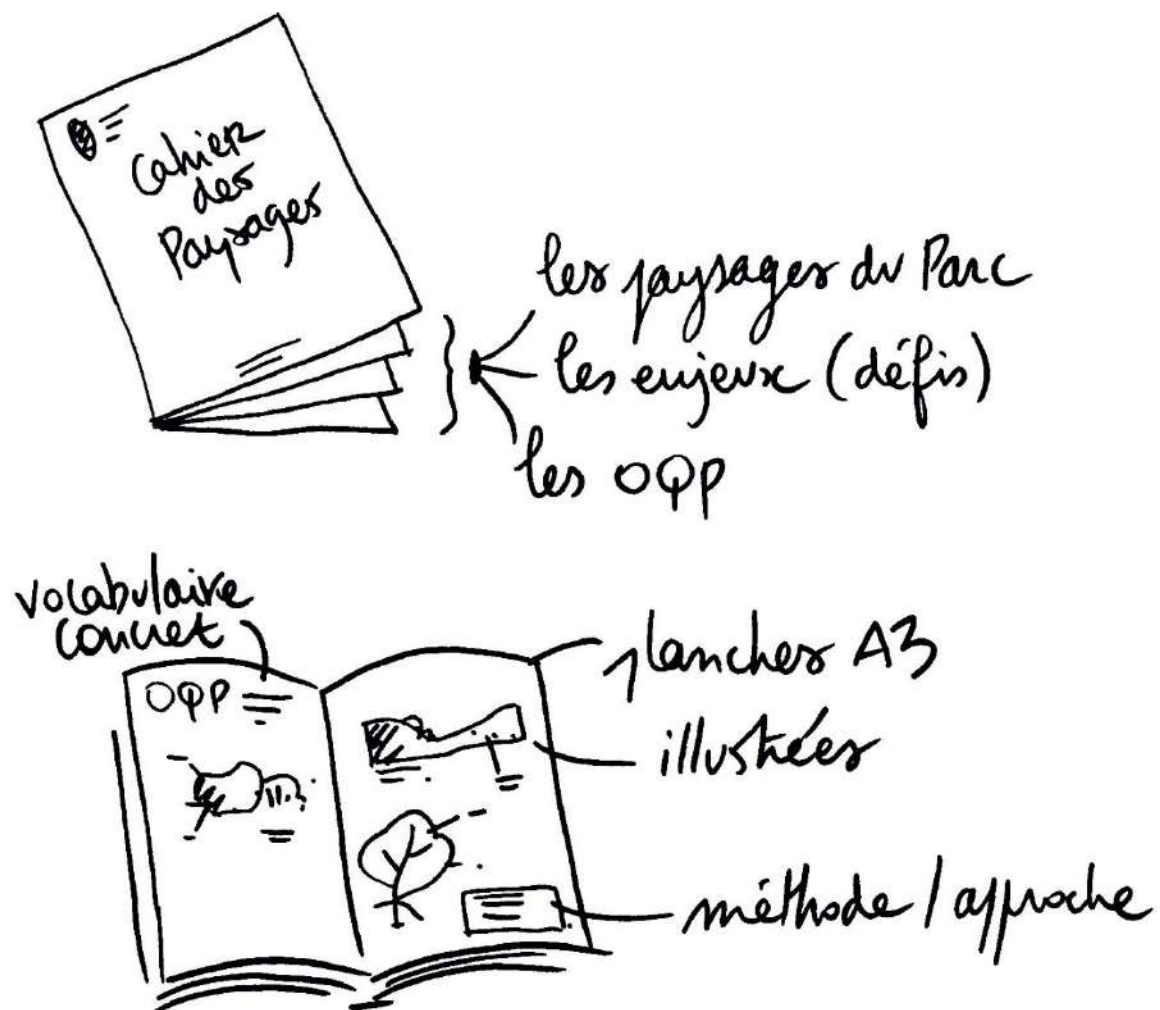 Cahier
des
Paysages
les paysages du Parc
les enjeux (défis)
les OQP
vocabulaire
concret
OQP
planches A3
illustrées
méthode / approche